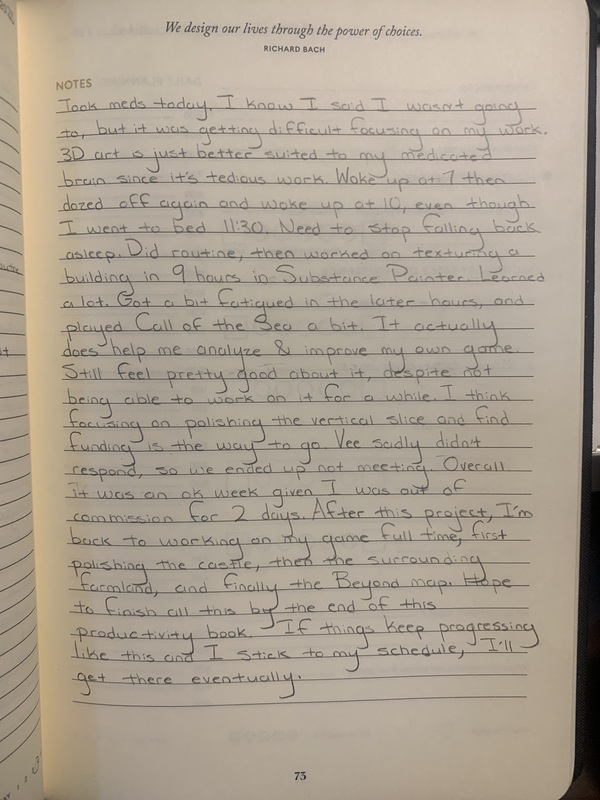 We design our lives through the power of choices.
RICHARD BACH
NOTES
Took meds today. I know I said I wasn't going
to, but it was getting difficult focusing on my work.
3D art is just better suited to my medicated
brain since it's tedious work. Woke up at 7 then
dozed off again and woke up at 10, even though
I went to bed 11:30. Need to stop falling back
asleep. Did routine, then worked on texturing a
building in 9 hours in Substance Painter. Learned
a lot. Got a bit fatigued in the later hours, and
played Call of the Sea a bit. It actually
does help me analyze & improve my own game.
Still feel pretty good about it, despite not
being able to work on it for a while. I think
focusing on polishing the vertical slice and find
funding is the way to go. Vee sadly didn't
respond, so we ended up not meeting. Overall
it was an ok week given I was out of
commission for 2 days. After this project, I'm
back to working on my game full time, first
polishing the castle, then the surrounding
farmland, and finally the Beyond map. Hope
to finish all this by the end of this
productivity book. If things keep progressing
like this and I stick to my schedule, I'll
get there eventually.
75